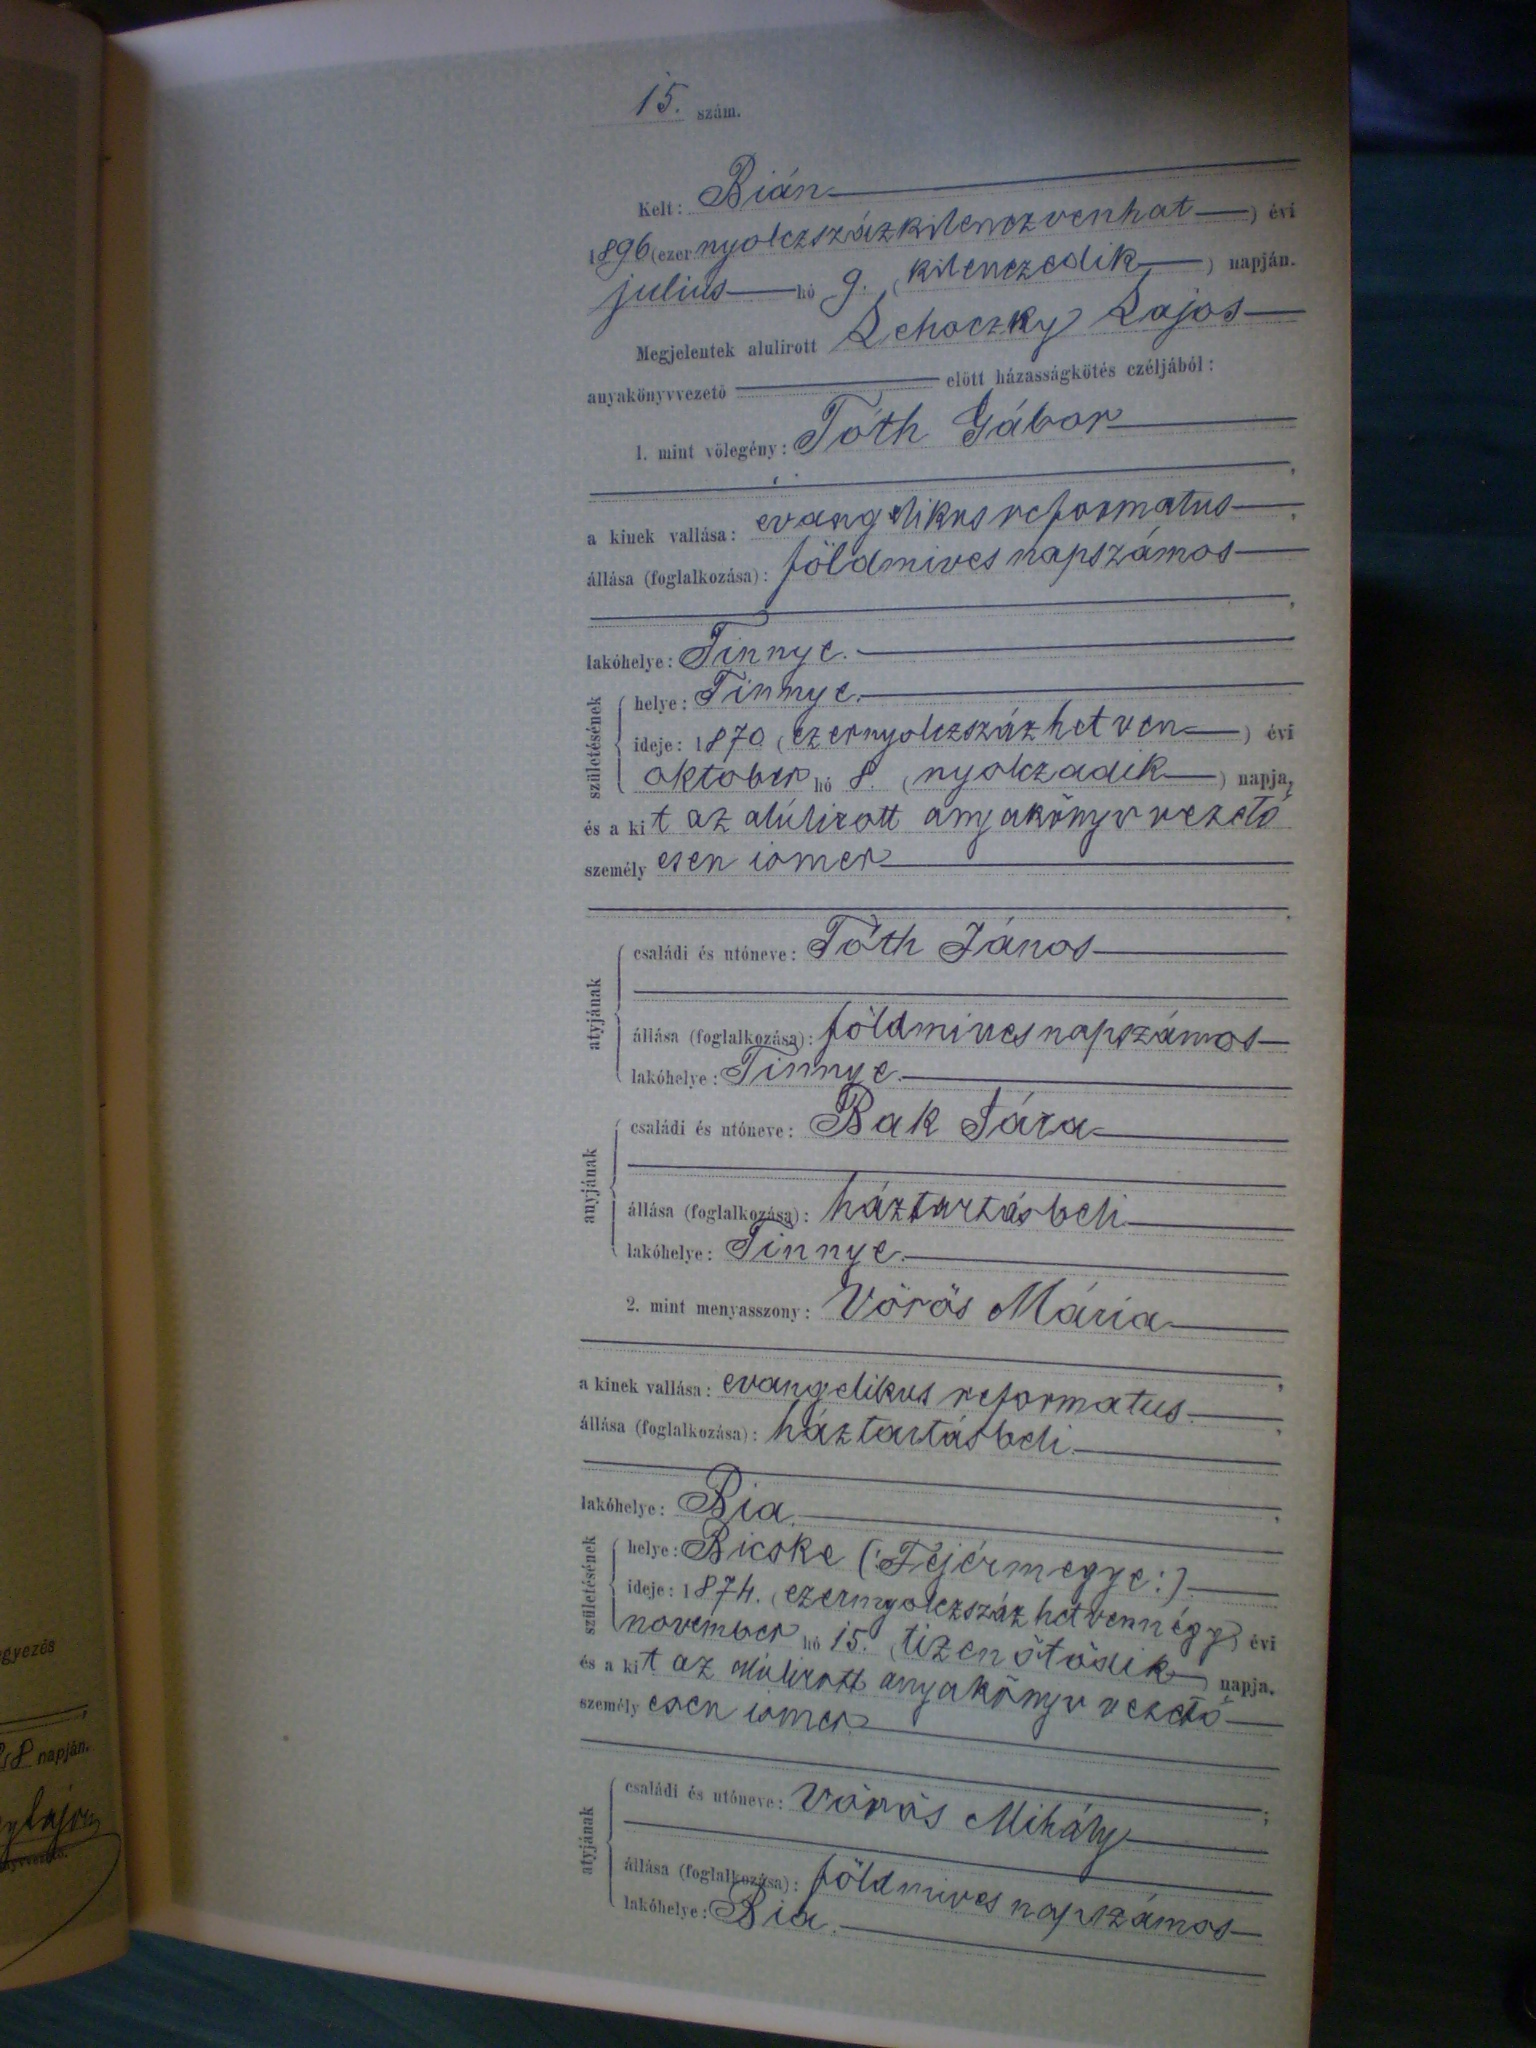 15. szám.
Kelt: Bián
1896 (ezernyolczszázkilenczvenhat) évi
julius hó 9. (kilenczedik) napján.
Megjelentek alulirott Lehoczky Lajos
anyakönyvvezető előtt házasságkötés czéljából:
1. mint völegény: Tóth Gábor
a kinek vallása: evangelikus reformatus
állása (foglalkozása): földmives napszámos
lakóhelye: Tinnye.
születésének
helye: Tinnye.
ideje: 1870. (ezernyolczszázhetven) évi
oktober hó 8. (nyolczadik) napja,
és a kit az alúlirott anyakönyvvezető
személyesen ismer
atyjának
családi és utóneve: Tóth János
állása (foglalkozása): földmives napszámos
lakóhelye: Tinnye.
anyjának
családi és utóneve: Bak Sára
állása (foglalkozása): háztartásbeli
lakóhelye: Tinnye.
2. mint menyasszony: Vörös Mária
a kinek vallása: evangelikus reformatus.
állása (foglalkozása): háztartásbeli
lakóhelye: Bia.
születésének
helye: Bicske (:Fejérmegye:)
ideje: 1874. (ezernyolczszázhetvennégy) évi
november hó 15. (tizenötödik) napja.
és a kit az alúlirott anyakönyvvezető
személyesen ismer
atyjának
családi és utóneve: Vörös Mihály
állása (foglalkozása): földmives napszámos
lakóhelye: Bia.
gyezés
napján.